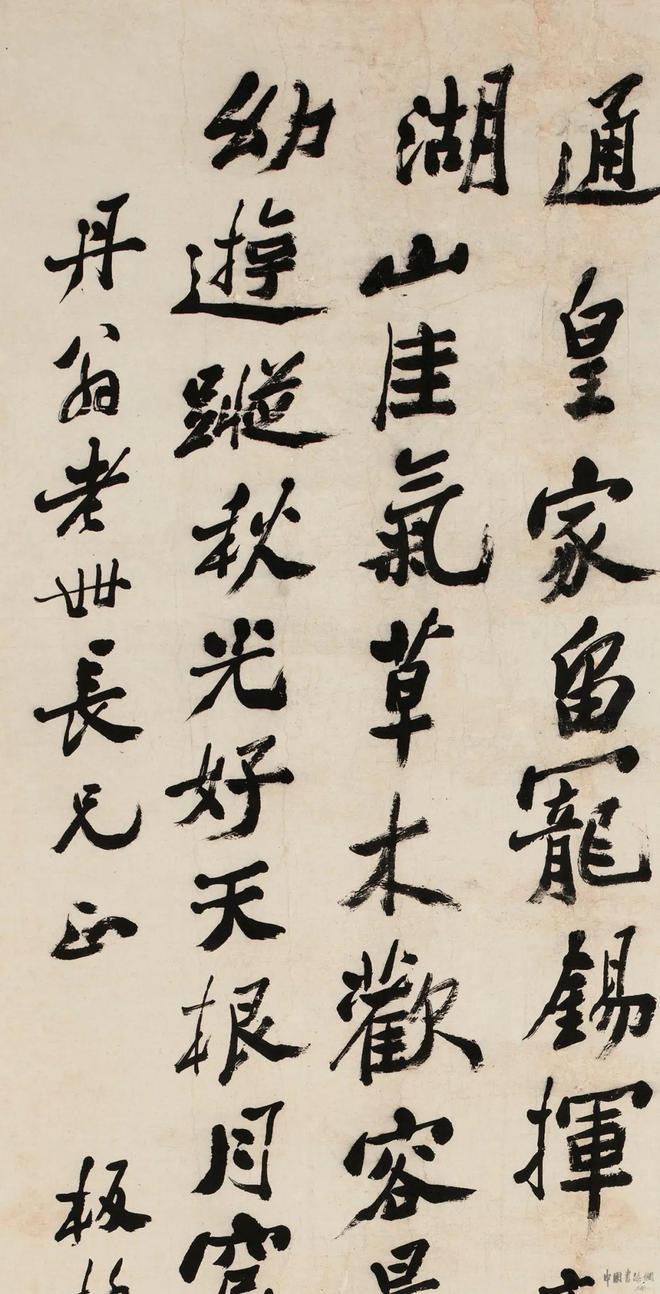 通皇家留寵錫揮
湖山佳氣草木歡容
幼遊蹤秋光好天根月窟
丹翁老世長兄正
板
中國書法網